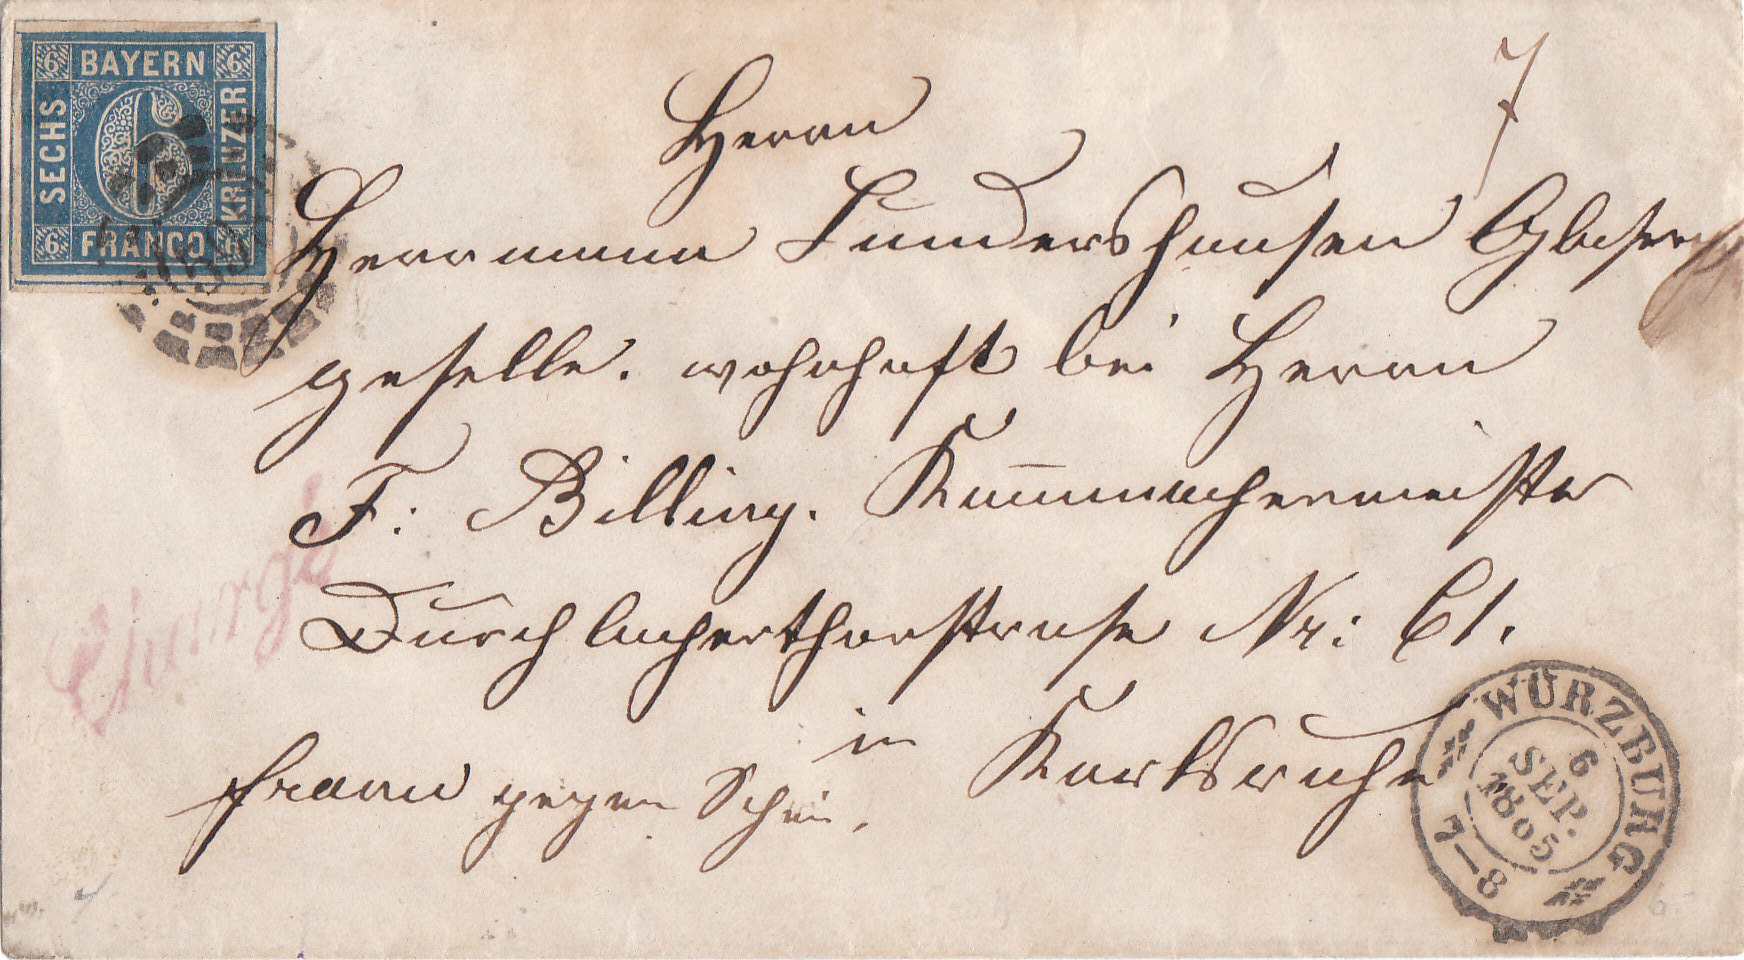 6 BAYERN 6
SECHS
6
KREUZER
6 FRANCO 6
7
Herrn
Herrmann Sundershausen Glaser
geselle. wohnhaft bei Herrn
F: Billing. Kam̄machermeister
Durchlacherthorstrase Nr: 61.
in Karlsruhe
franco gegen Schein.
Chargé
WÜRZBURG
6
SEP.
1865
7—8